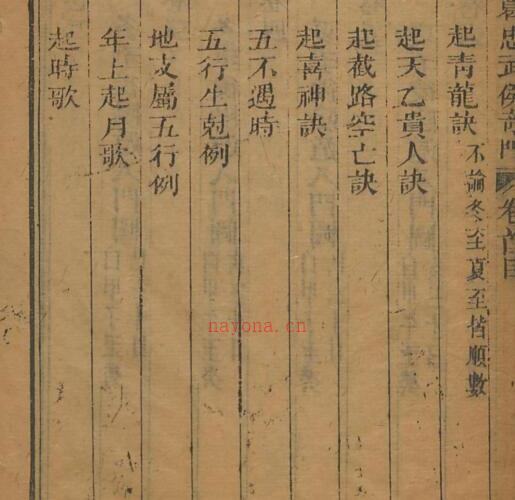 忠武侯奇門 卷首目
起青龍訣 不論冬至夏至皆順數
起天乙貴人訣
起截路空亡訣
起喜神訣
五不遇時
五行生剋例
地支屬五行例
年上起月歌
起時歌
nayona.cn